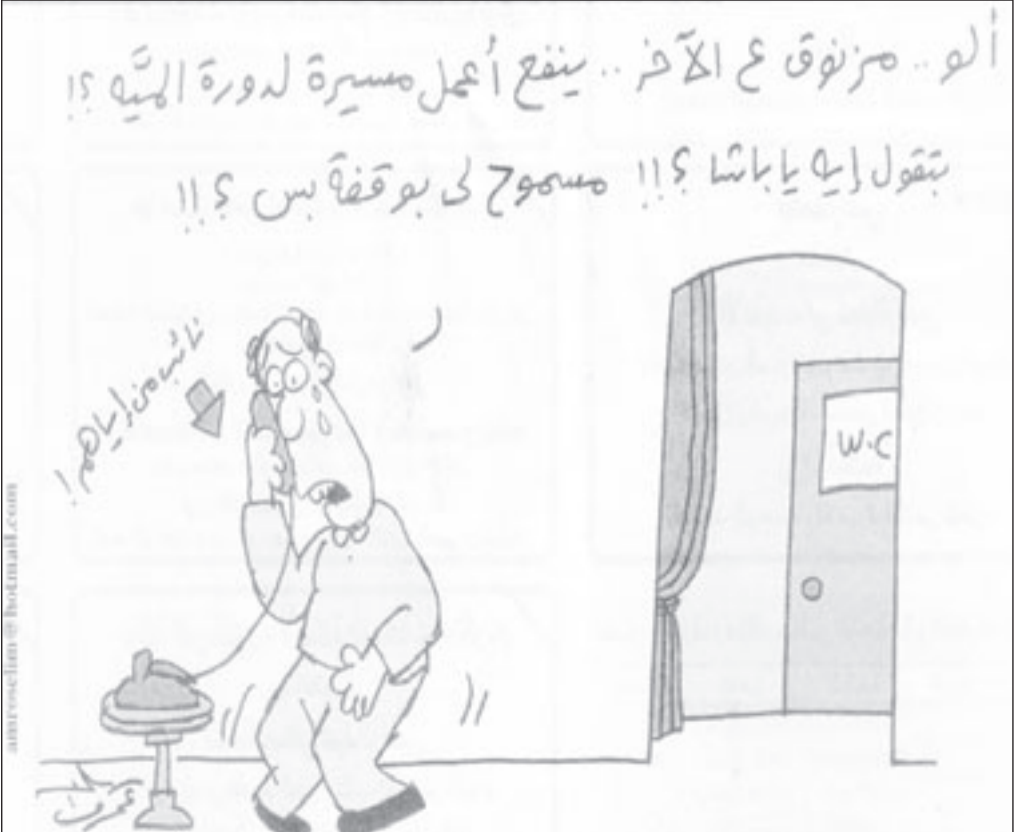 ألو .. مزنوق ع الآخر .. ينفع أعمل مسيرة لدورة الميّه ؟!
بتقول إيه يا باشا ؟!! مسموح لى بوقفة بس ؟!!
نائب من إياهم !
W.C
amroselim@hotmail.com